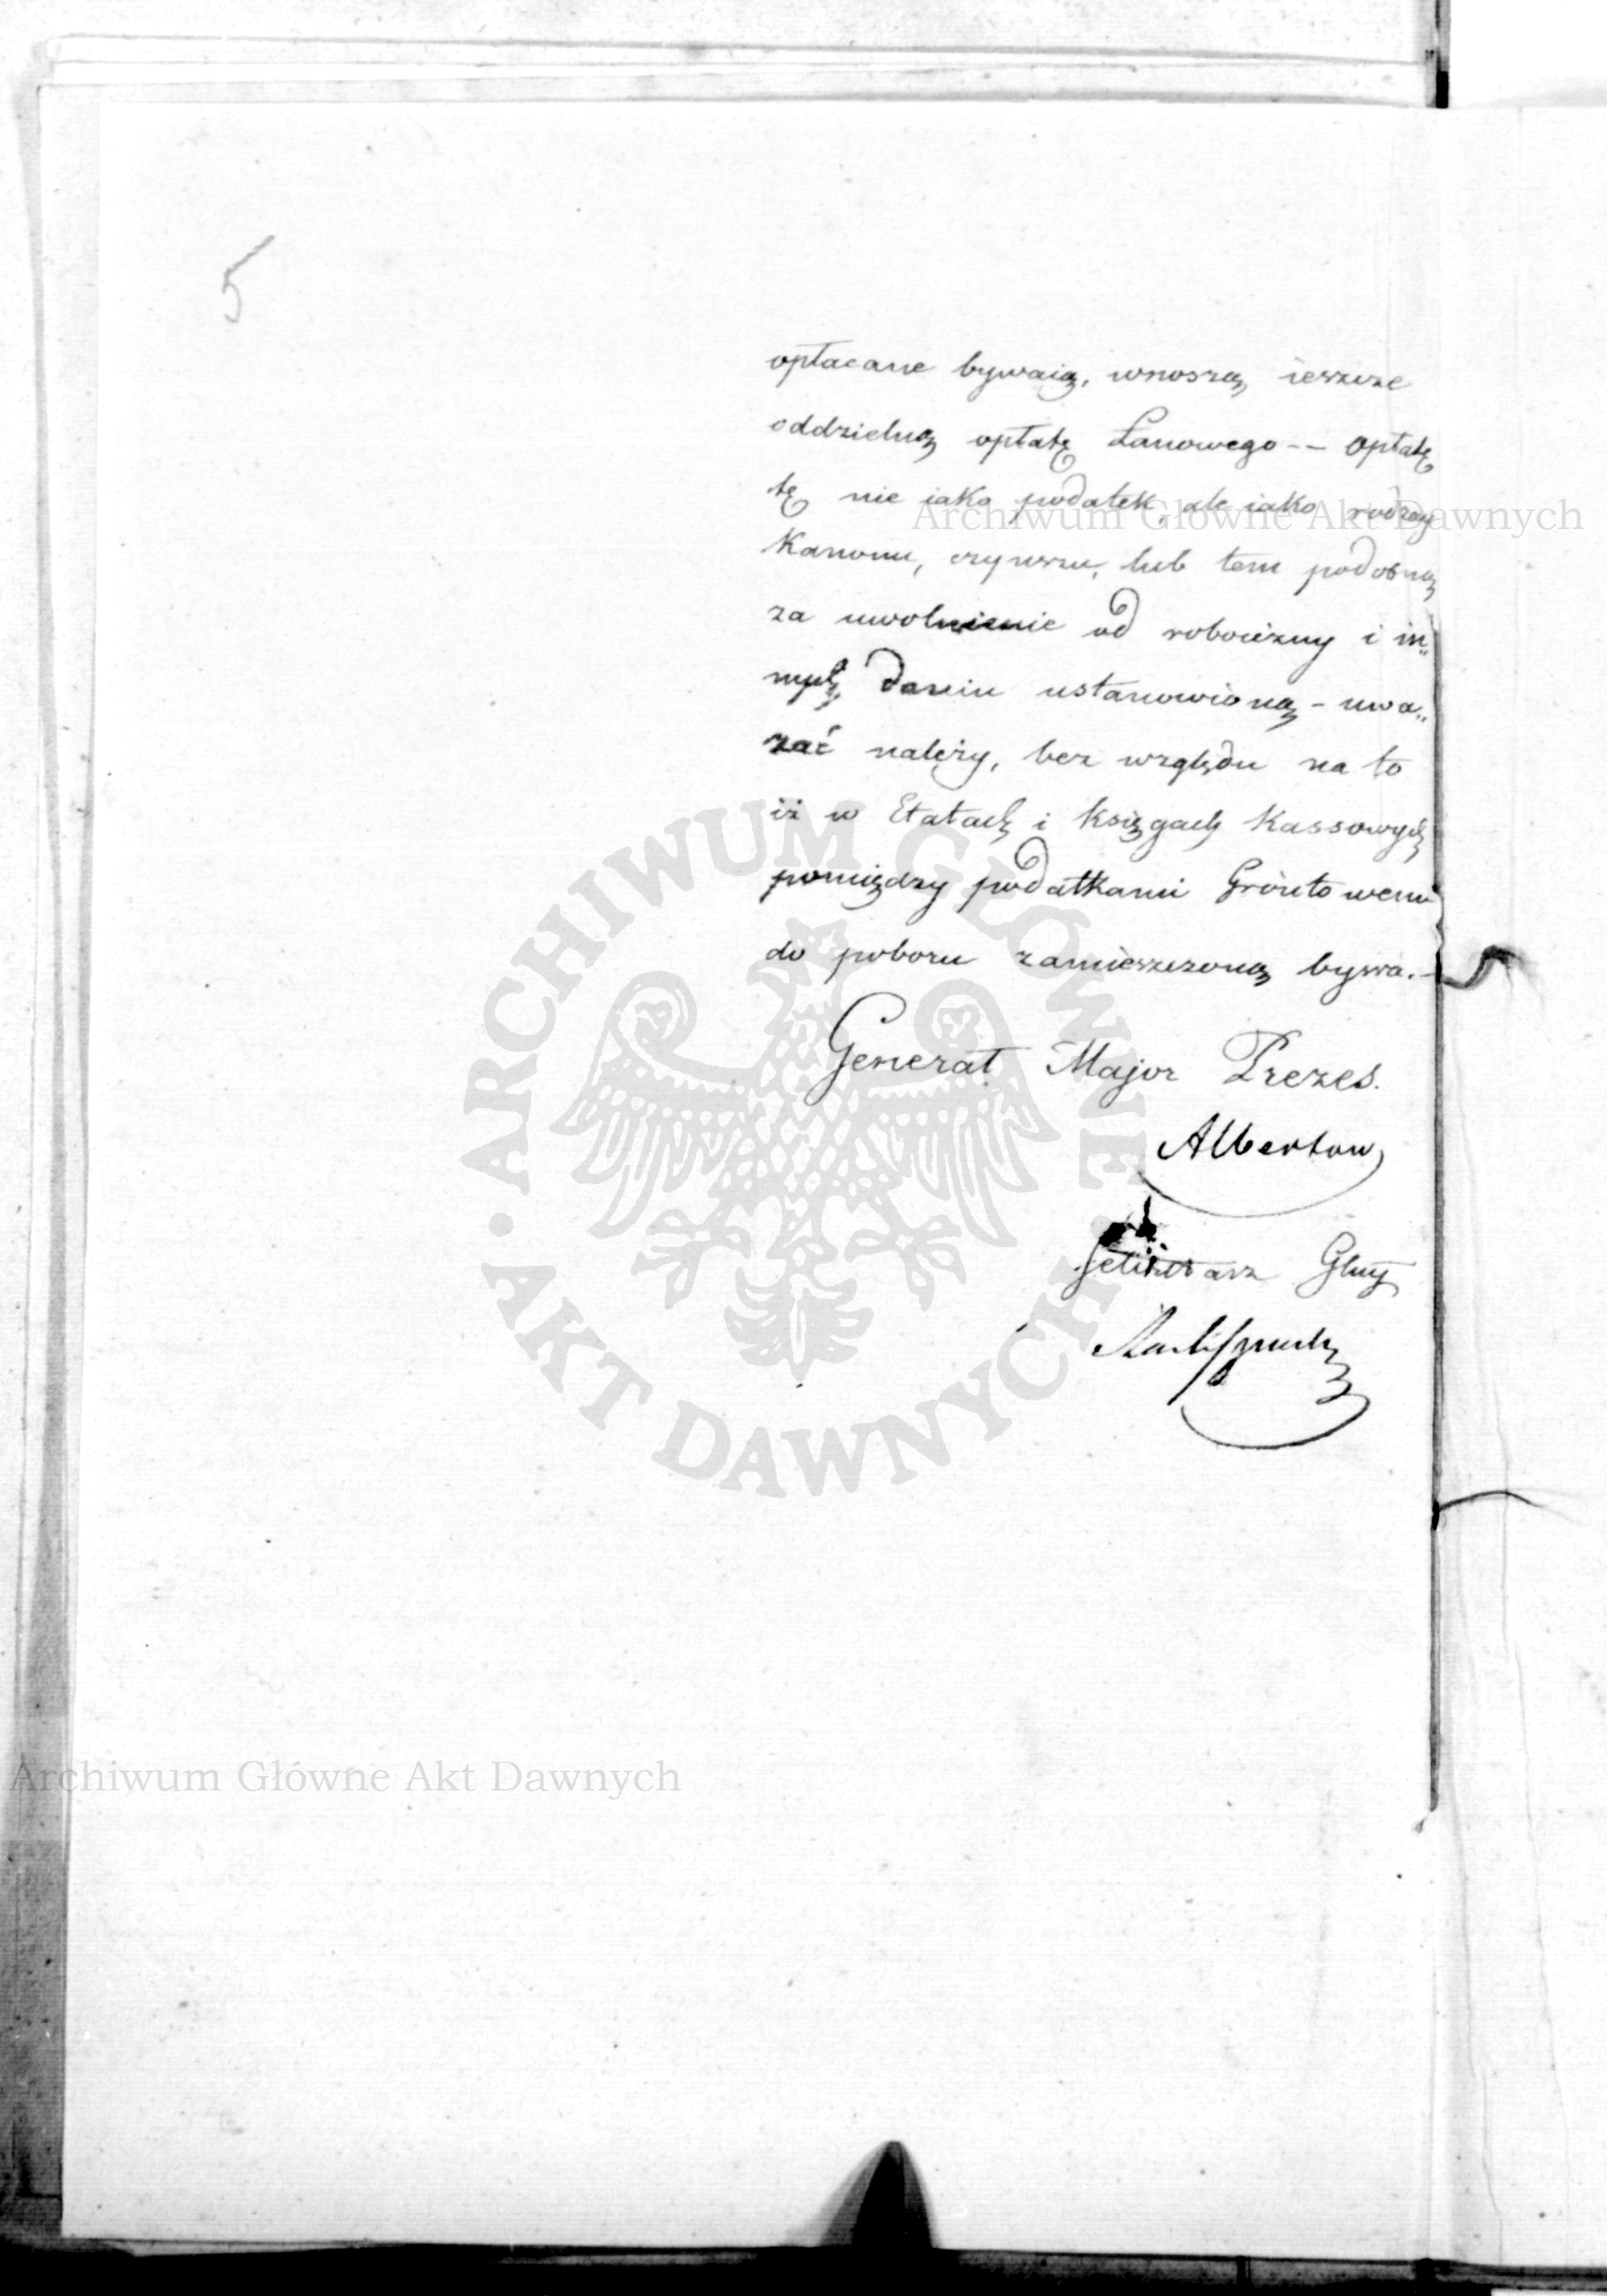 5
opłacane bywaią, wnoszą ieszcze
oddzielną opłatę Łanowego -- Opłatę
tę nie iako podatek, ale iako rodzay
Kanonu, czynszu, lub tem podobną
za uwolnienie od robocizny i in„
nych danin ustanowioną - uwa„
żać należy, bez względu na to
iż w Etatach i Księgach Kassowych
pomiędzy podatkami Gróntowemi
do poboru zamieszczoną bywa. -
Generał Major Prezes.
Albertow
Sekretarz Glny
Archiwum Główne Akt Dawnych
ARCHIWUM GŁÓWNE • AKT DAWNYCH •
Archiwum Główne Akt Dawnych